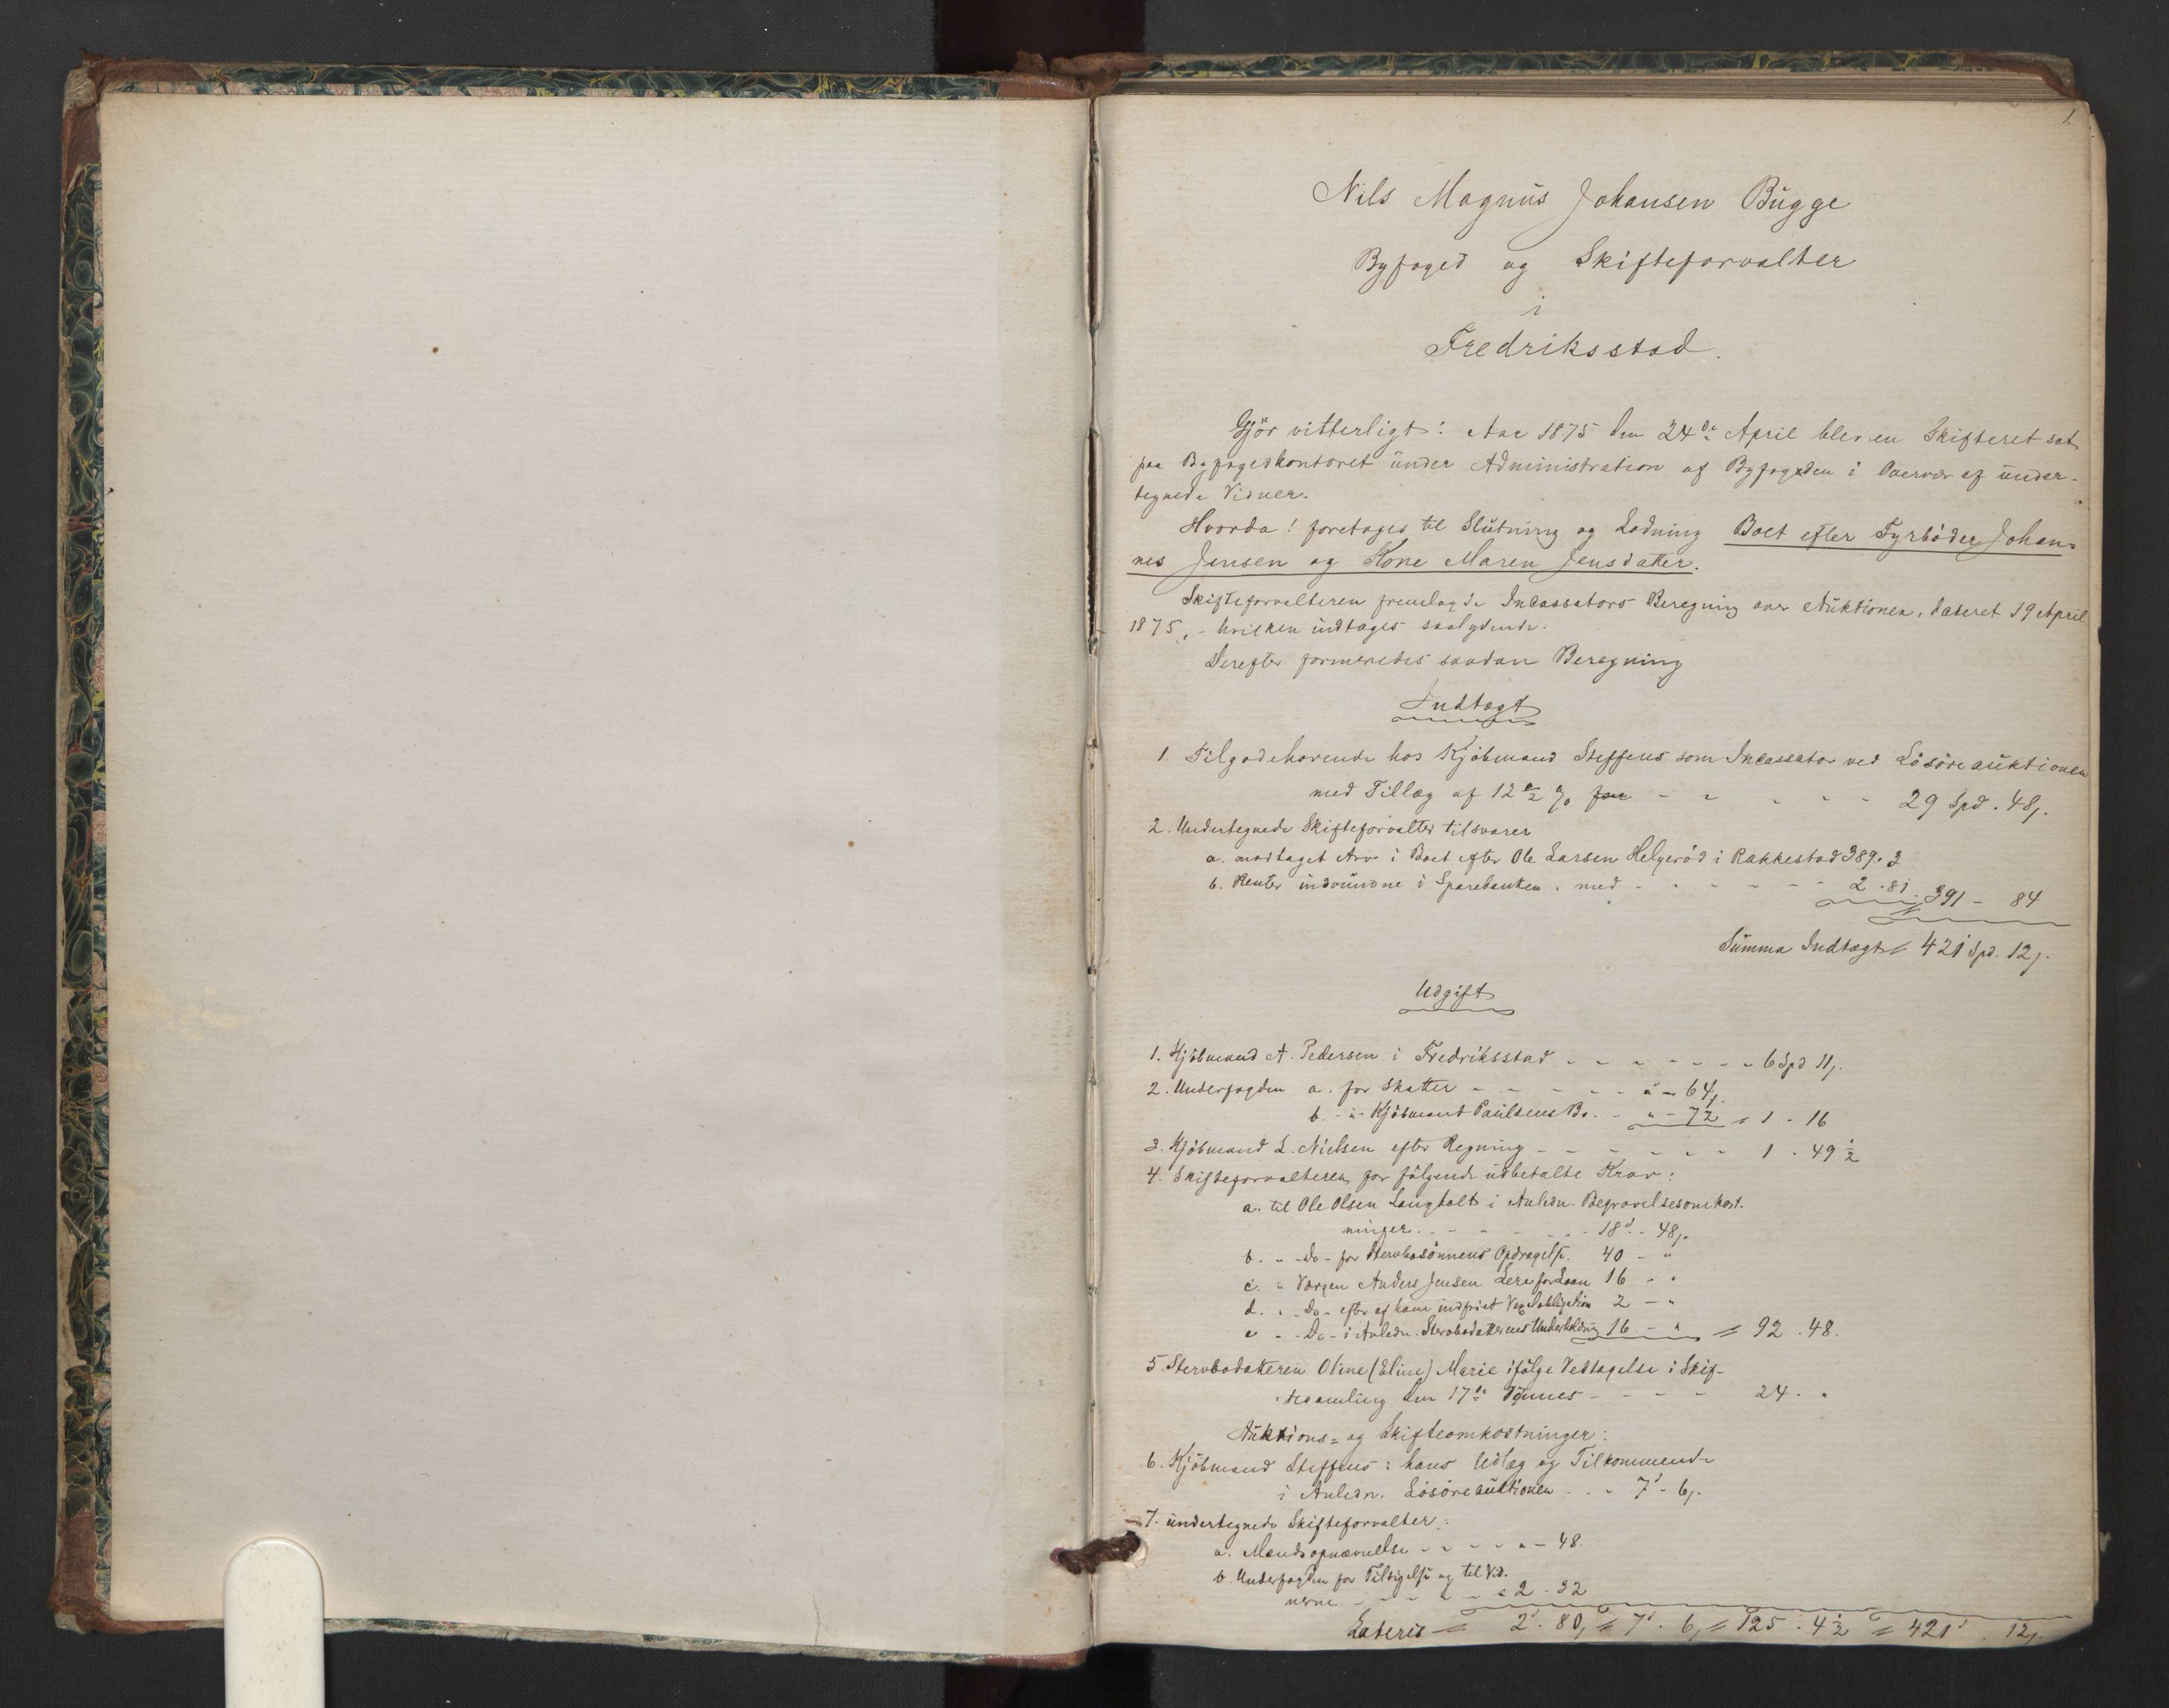 1.
Nils Magnus Johansen Bugge
Byfoged og Skifteforvalter
i
Fredriksstad.
Gjör vitterligt: Aar 1875 den 24de April blev en Skifteret sat
paa Byfogedkontoret under Administration af Byfogden i Overvær af under-
tegnede Vidner.
Hvorda! foretoges til Slutning og Lodning Boet efter Fyrböder Johan-
nes Jensen og Kone Maren Jensdatter.
Skifteforvalteren fremlagde Incassators Beregning over Auktionen, dateret 19 April
1875, - hvilken indtages saalydende.
Derefter formeredes saadan Beregning
Indtægt
1. Tilgodehavende hos Kjöbmand Steffens som Incassator ved Lösöreauktionen
med Tillæg af 12 ½ % - - - - - 29 Spd. 48 ß.
2. Undertegnede Skifteforvalter tilsvarer
a. modtaget Arv i Boet efter Ole Larsen Helgeröd i Rakkestad 389. 3
b. Renter indvundne i Sparebanken, med - - - - - - 2 . 81. 391 - 84
Summa Indtægt = 421 Spd. 12 ß.
Udgift
1. Kjöbmand A. Pedersen i Fredriksstad - - - - - - - 6 Spd 11 ß.
2. Underfogden a. for Skatter - - - - - " - 64 ß.
b. - " - Kjöbmand Paulsens Bo. - " - 72 = 1 - 16
3. Kjöbmand L. Nielsen efter Regning - - - - - - 1 . 49 ½
4. Skifteforvalteren for fölgende udbetalte Krav:
a. til Ole Olsen Langholt i Anledn. Begravelsesomkost-
ninger. - - - - - - 18d. - 48 ß.
b. " - Do - for Stervbosönnens Opdragelse. 40 - "
c. " Værgen Anders Jensen Lere for Laan 16 - "
d. " - Do - efter af ham indfriet Vexelobligation 2 - "
e " - Do - i Anledn. Stervbodatterens Underholdning 16 - " = 92 . 48.
5. Stervbodatteren Oline (Eline) Marie ifölge Vedtagelse i Skif-
tesamling den 17de - - - - 24 . "
Auktions- og Skifteomkostninger:
6. Kjöbmand Steffens: hans Udlæg og Tilkommende
i Anledn. Lösöreauktionen - - - 7d - 6 ß.
7. undertegnede Skifteforvalter:
a. Mændsopnævnelse - - - - " - 48.
b. Underfogden for Tilsigelse og til Vid-
nerne - - - - - 2 . 32
Lateris = 2d. 80 ß = 7d. 6 ß = 125 . 4 ½ = 421d . 12 ß.